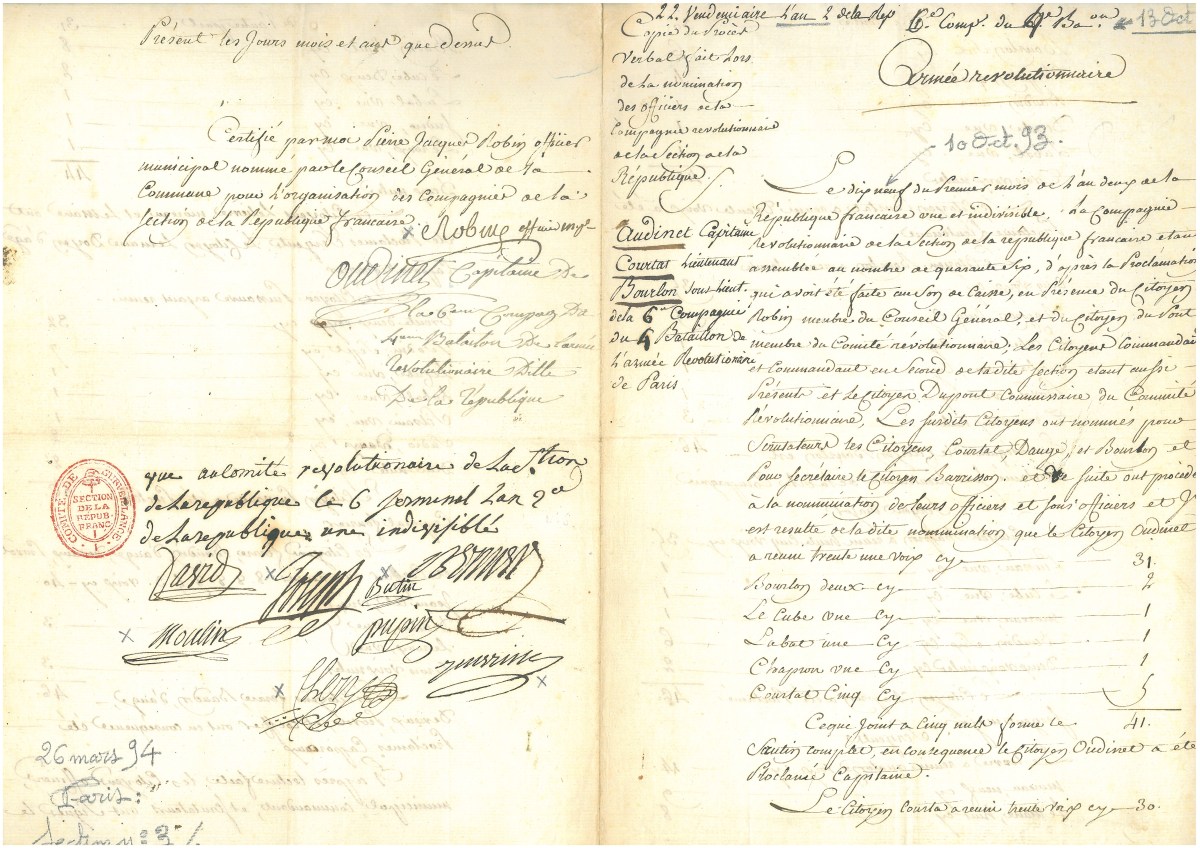 Présent les Jours mois et ans que dessus.
Certifié par moi Pierre Jacques Robin officier
municipal nommé par le Conseil Général de la
Commune pour L'organisation des Compagnies de la
Section de la République française. x Robin officier mpl
Oudinet Capitaine De
la 6em Compag Du
4em Bataillon De larmée
révolutionnaire Ditte
De la République
COMITÉ DE SURVEILLANCE
SECTION
DE LA
RÉPUB.
FRANC.
vue au Comité revolutionaire de la s.tion
de la republique le 6 Jerminel Lan 2e
de la republique une indivisiblé
David
Butin
Moulin
pupin
26 mars 94
Paris:
Section n° 3
22. Vendemiaire L'an 2 de la Rep
6e Comp. du 4e Baon
13 Oct
Copie du Procès
Verbal fait Lors
de La nomination
des officiers de la
Compagnie revolutionnaire
de la Section de la
République.
Audinet Capitaine
Courtat Lieutenant
Bourlon Sous Lieut.
de la 6e Compagnie
du 4 Bataillon de
L'armée Revolutionaire
de Paris
Armée revolutionnaire
10 Oct. 93.
Le dix neuf du premier mois de L'an deux de la
République française une et indivisible, La Compagnie
revolutionnaire de la Section de la république française etant
assemblée au nombre de quarante Six, d'après la Proclamation
qui avoit été faite au Son de Caisse, en Présence du Citoyen
Robin membre du Conseil Général, et du Citoyen du Pont
membre du Comité revolutionnaire, Les Citoyens Commandant
et Commandant en Second de la dite Section etant aussi
Présents et Le Citoyen Dupont Commissaire du Committé
Révolutionnaire, Les Susdits Citoyens ont nommés pour
Scrutateurs les Citoyens, Courtat, Dauge, et Bourlon et
Pour Secrétaire le Citoyen Barrisson. et de Suite ont procédé
à la nommination de Leurs officiers et Sous officiers et Il
est resulté de la dite nommination que le Citoyen Oudinet
a reuni trente une voix cy 31.
Bourlon deux cy 2
Le Cube une Cy 1
Labat une Cy 1
Chapron une Cy 1
Courtat Cinq Cy 5
Ce qui Joint a Cinq nuls forme le 41.
Scrutin complet, en consequence le Citoyen Oudinet a été
Proclamé Capitaine.
Le Citoyen Courta a reuni trente voix cy 30.